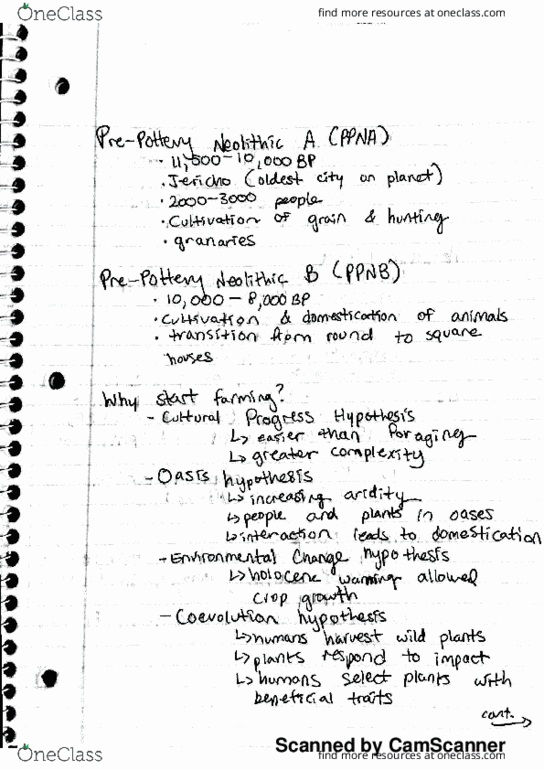 OneClass
find more resources at oneclass.com
Pre-Pottery Neolithic A (PPNA)
• 11,500-10,000 BP
• Jericho (oldest city on planet)
• 2000-3000 people
• Cultivation of grain & hunting
• granaries
Pre-Pottery Neolithic B (PPNB)
• 10,000 - 8,000 BP
• Cultivation & domestication of animals
• transition from round to square
houses
Why start farming?
- Cultural Progress Hypothesis
↳ easier than foraging
↳ greater complexity
- Oasis hypothesis
↳ increasing aridity
↳ people and plants in oases
↳ interaction leads to domestication
- Environmental Change hypothesis
↳ holocene warming allowed
crop growth
- Coevolution hypothesis
↳ humans harvest wild plants
↳ plants respond to impact
↳ humans select plants with
beneficial traits
cont. →
Scanned by CamScanner
OneClass
find more resources at oneclass.com